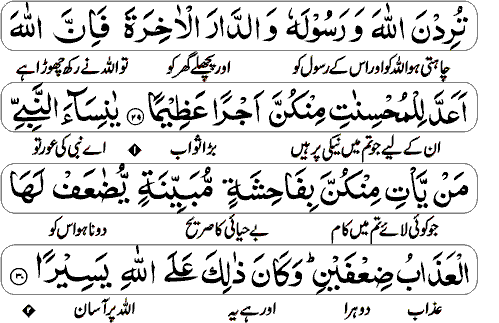 تُرِدْنَ اللّٰهَ وَ رَسُوْلَهٗ وَالدَّارَ الْاٰخِرَةَ فَاِنَّ اللّٰهَ
چاہتی ہو اللہ کو اور اس کے رسول کو اور پچھلے گھر کو تو اللہ نے رکھ چھوڑا ہے
اَعَدَّ لِلْمُحْسِنٰتِ مِنْكُنَّ اَجْرًا عَظِيْمًا ﴿۲۹﴾ يٰنِسَآءَ النَّبِيِّ
ان کے لیے جو تم میں نیکی پر ہیں بڑا ثواب اے نبی کی عورتو
مَنْ يَّاْتِ مِنْكُنَّ بِفَاحِشَةٍ مُّبَيِّنَةٍ يُّضٰعَفْ لَهَا
جو کوئی لائے تم میں کام بے حیائی کا صریح دونا ہو اس کو
الْعَذَابُ ضِعْفَيْنِ ؕ وَكَانَ ذٰلِكَ عَلَى اللّٰهِ يَسِيْرًا ﴿۳۰﴾
عذاب دوہرا اور ہے یہ اللہ پر آسان